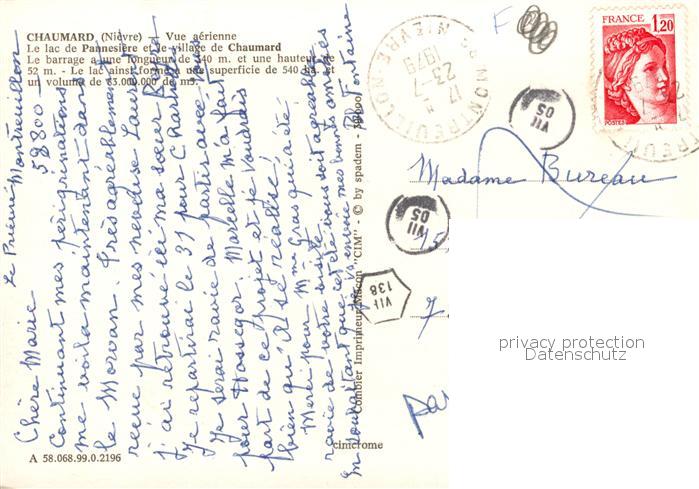 CHAUMARD (Nièvre) - Vue aérienne
Le lac de Pannesière et le village de Chaumard
Le barrage a une longueur de 340 m. et une hauteur de
52 m. - Le lac ainsi formé a une superficie de 540 ha. et
un volume de 83.000.000 de m3.
Le Prieuré Montreuillon
58800
Chère Marie
Continuant mes pérégrinations
me voilà maintenant dans
le Morvan. Très agréablement
reçue par mes neveux Laurent
j'ai retrouvé ici ma sœur
Je repartirai le 31 pour Chartres
Je serai ravie de partir avec vous
pour Hossegor. Marcelle m'a fait
part de ce projet et je voudrais
bien qu'il se réalise!
Merci pour Mme Gras qui a été
ravie de votre visite.
En souhaitant que cet été vous soit agréable
je vs envoie mes bonnes amitiés
Fontaine
Combier Imprimeur Macon "CIM" - © by spadem
cimcrome
A 58.068.99.0.2196
F
FRANCE
1,20
POSTES
MONTREUILLON
17 H
23-7
1979
NIÈVRE
VII
05
VII
05
VII
138
Madame Bureau
15
7
privacy protection
Datenschutz